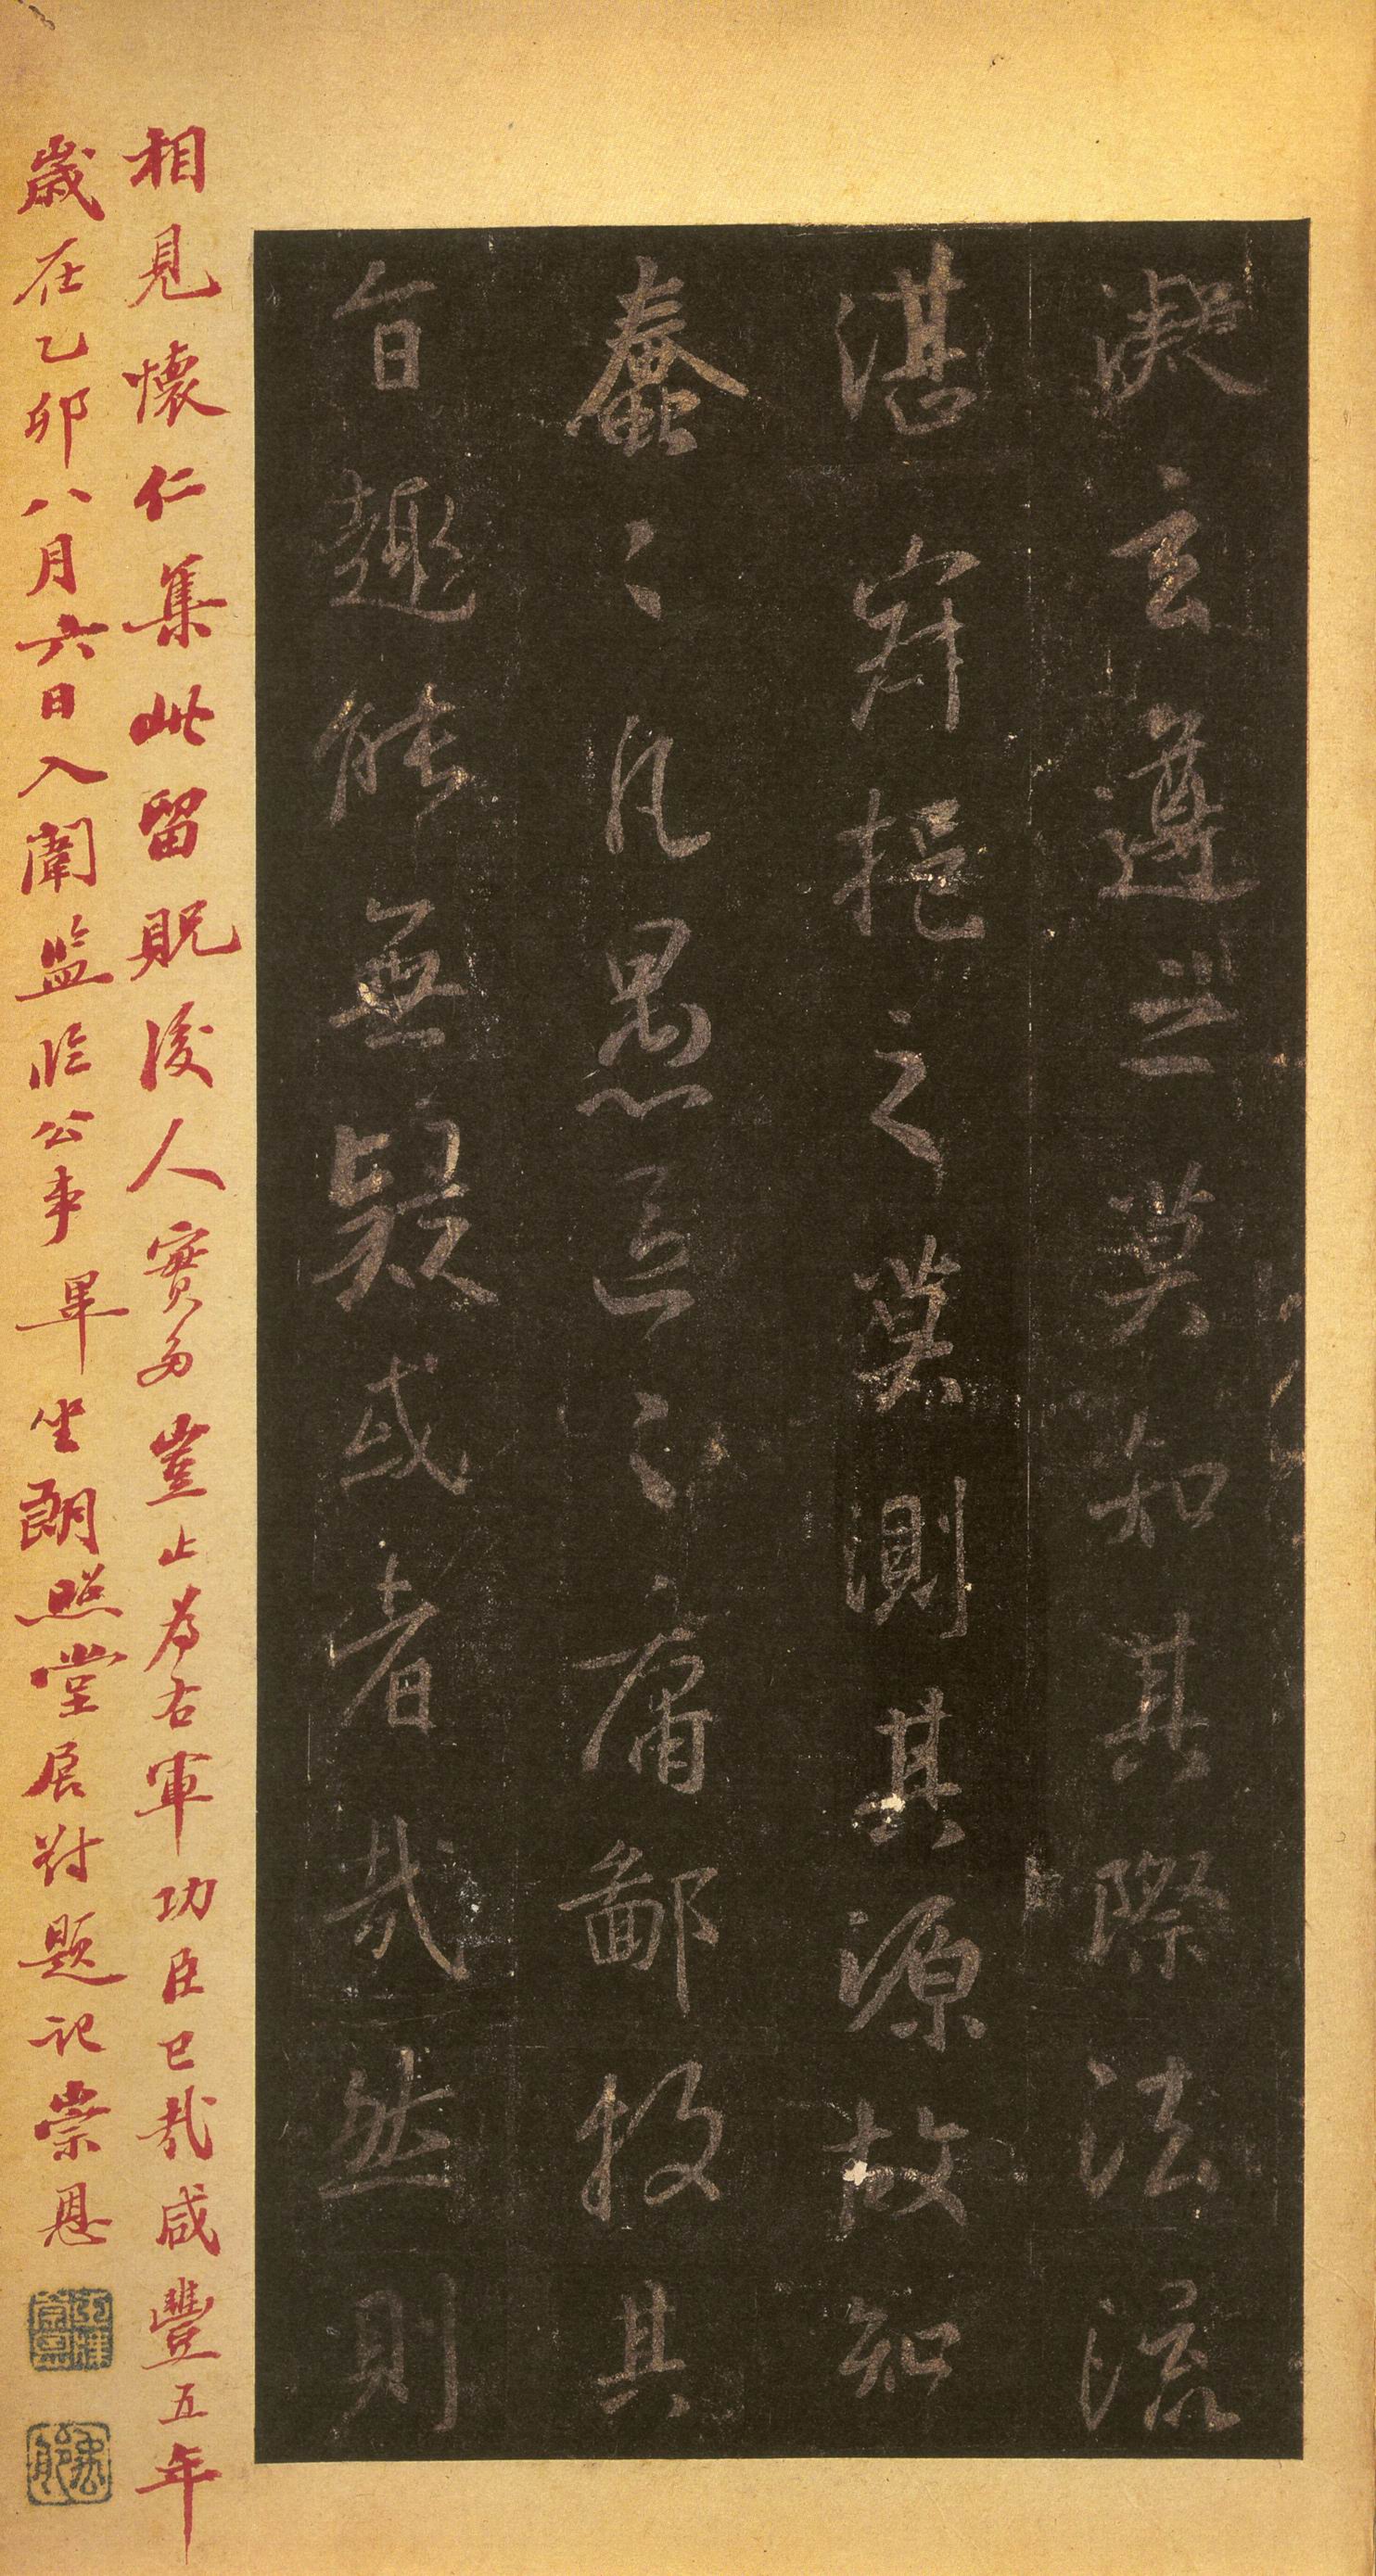 凝玄遵之莫知其際法流
湛寂挹之莫測其源故知
蠢〻凡愚區〻庸鄙投其
旨趣能無疑或者哉然則
相見懷仁集此留貺後人實多豈止為右軍功臣已哉咸豐五年
歲在乙卯八月六日入闈監臨公事畢坐朗照堂居對題記崇恩